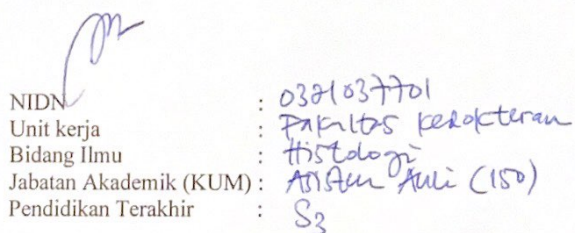 NIDN : 0321037701
Unit kerja : Fakultas Kedokteran
Bidang Ilmu : Histologi
Jabatan Akademik (KUM) : Asisten Ahli (150)
Pendidikan Terakhir : S3